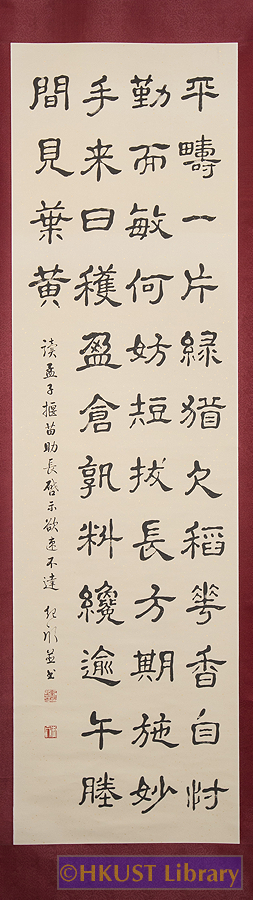 平疇一片緑猶欠稻華香自忖
勤而敏何妨短拔長方期施妙
手来日穫盈倉孰料纔逾午塍
間見葉黃
读孟子揠苗助長啓示欲速不達 並书
©HKUST Library